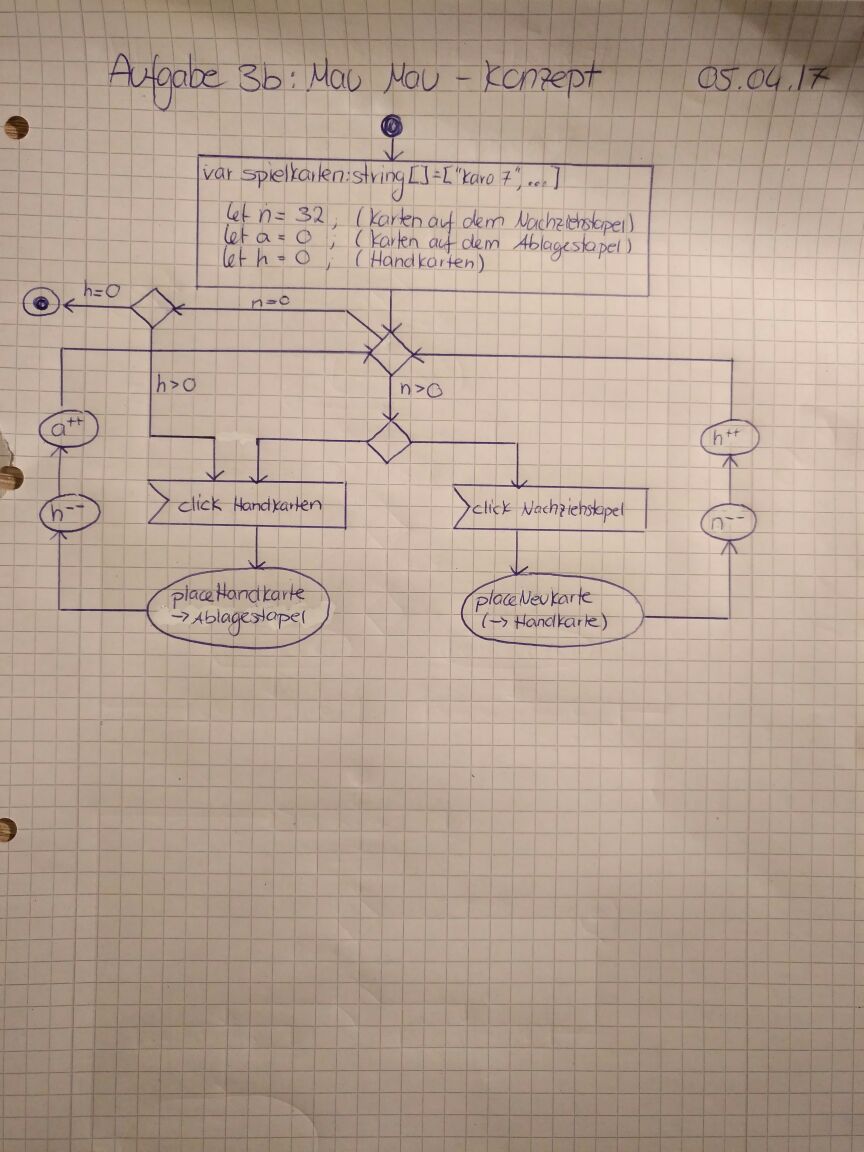 Aufgabe 3b: Mau Mau - Konzept 05.04.17
var spielkarten:string[]=["Karo 7",...]
let n = 32 ; (Karten auf dem Nachziehstapel)
let a = 0 ; (Karten auf dem Ablagestapel)
let h = 0 ; (Handkarten)
h=0
n=0
h>0
n>0
a++
h++
click Handkarten
click Nachziehstapel
h--
n--
placeHandkarte
→ Ablagestapel
placeNeuKarte
(→ Handkarte)